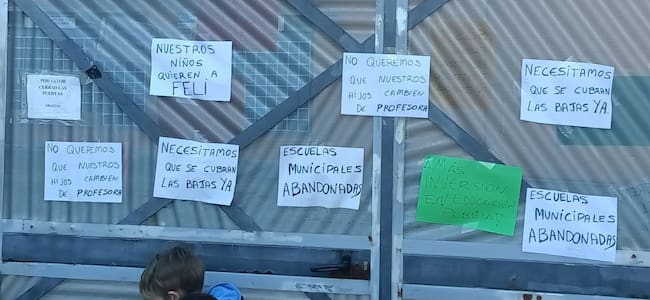 NUESTROS
NIÑOS
QUIEREN A
FELI
NO QUEREMOS
QUE NUESTROS
HIJOS CAMBIEN
DE PROFESORA
NECESITAMOS
QUE SE CUBRAN
LAS BAJAS YA.
POR FAVOR
CERRAD LAS
PUERTAS
GRACIAS
NO QUEREMOS
QUE NUESTROS
HIJOS CAMBIEN
DE PROFESORA
NECESITAMOS
QUE SE CUBRAN
LAS BAJAS YA
ESCUELAS
MUNICIPALES
ABANDONADAS
MAS
INVERSIÓN
EN EDUCACIÓN
PUBLICA!
ESCUELAS
MUNICIPALES
ABANDONADAS